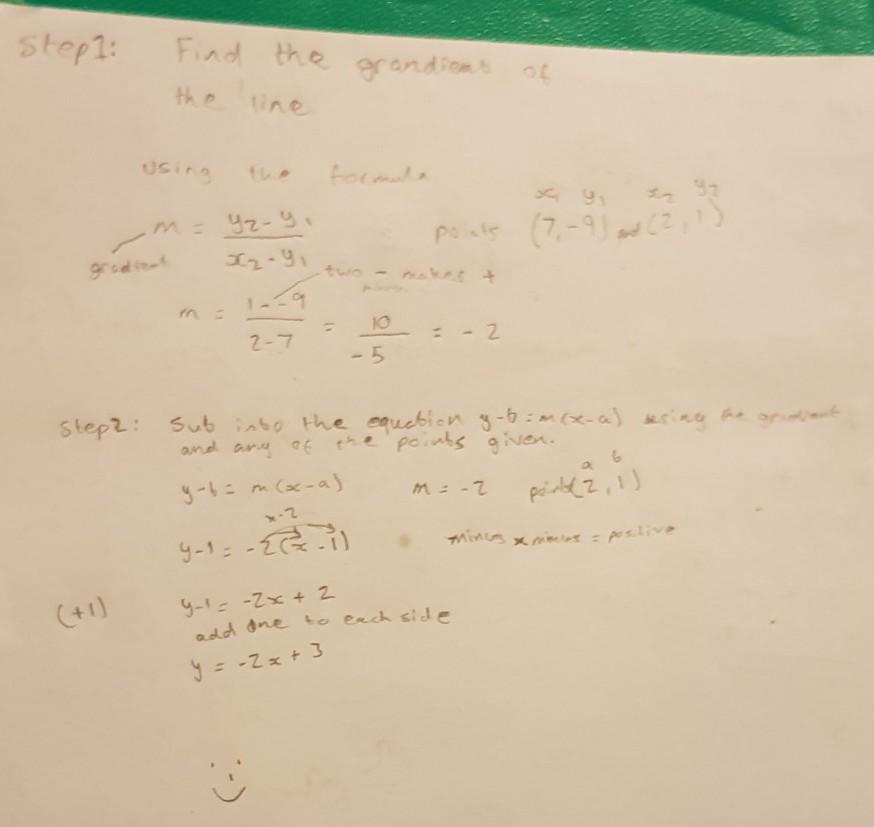 Step1: Find the grandient of
the line
using the formula
x₁ y₁ x₂ y₂
m = y₂-y₁ / x₂-y₁ points (7,-9) and (2,1)
gradient
two - makes +
m = 1--9 / 2-7 = 10 / -5 = -2
Step2: Sub into the equation y-b=m(x-a) using the gradient
and any of the points given.
a b
y-b = m(x-a) m = -2 point(2,1)
x-2
y-1 = -2(x-1) minus x minus = positive
(+1) y-1 = -2x + 2
add one to each side
y = -2x + 3